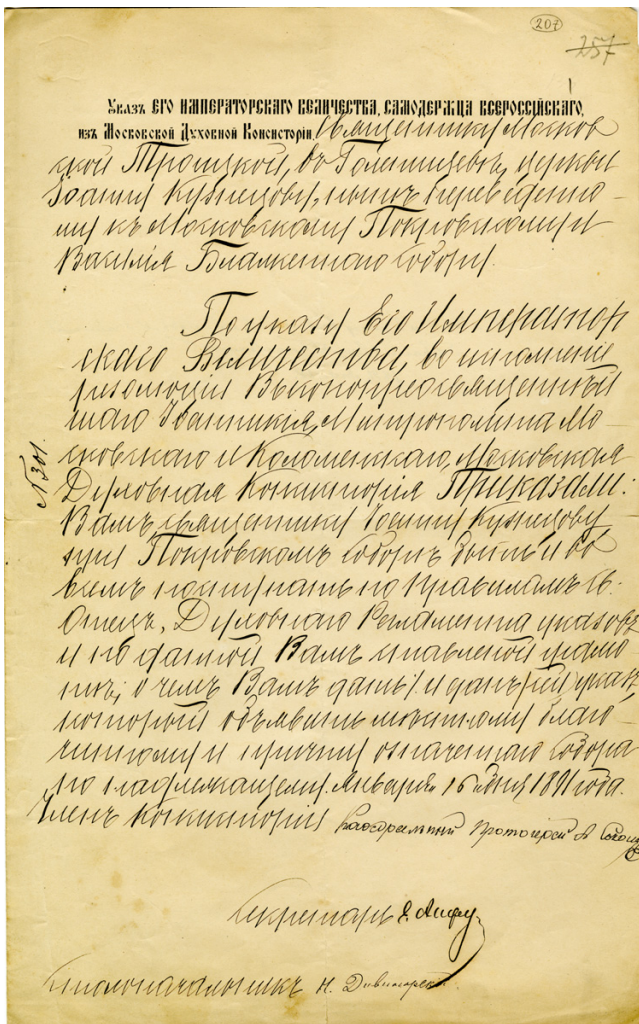 207
257
Указъ ЕГО ИМПЕРАТОРСКАГО ВЕЛИЧЕСТВА, САМОДЕРЖЦА ВСЕРОССІЙСКАГО,
изъ Московской Духовной Консисторіи, священнику Москов
ской Троицкой, въ Голенищевѣ, церкви
Іоанну Кузнецову, нынѣ переведенно-
му къ Московскому Покровскому и
Василія Блаженнаго Собору.
По указу Его Император
скаго Величества, во исполненіе
резолюціи Высокопреосвященнѣй
шаго Іоанникія, Митрополита Мо-
сковскаго и Коломенскаго, Московская
Духовная Консисторія Приказали:
№301.
Вамъ, священнику Іоанну Кузнецову
при Покровскомъ Соборѣ быть и во
всемъ поступать по правиламъ Св.
Отецъ, Духовнаго Регламента указовъ
и по данной Вамъ ставленой грамо
тѣ; о чемъ Вамъ дать /и данъ/ сей указъ,
который объявить мѣстному благо-
чинному и причту означеннаго Собора
по надлежащему. Января 16 дня 1891 года.
Членъ Консисторіи Каѳедральный Протоіерей А
Секретарь
Столоначальникъ Н.